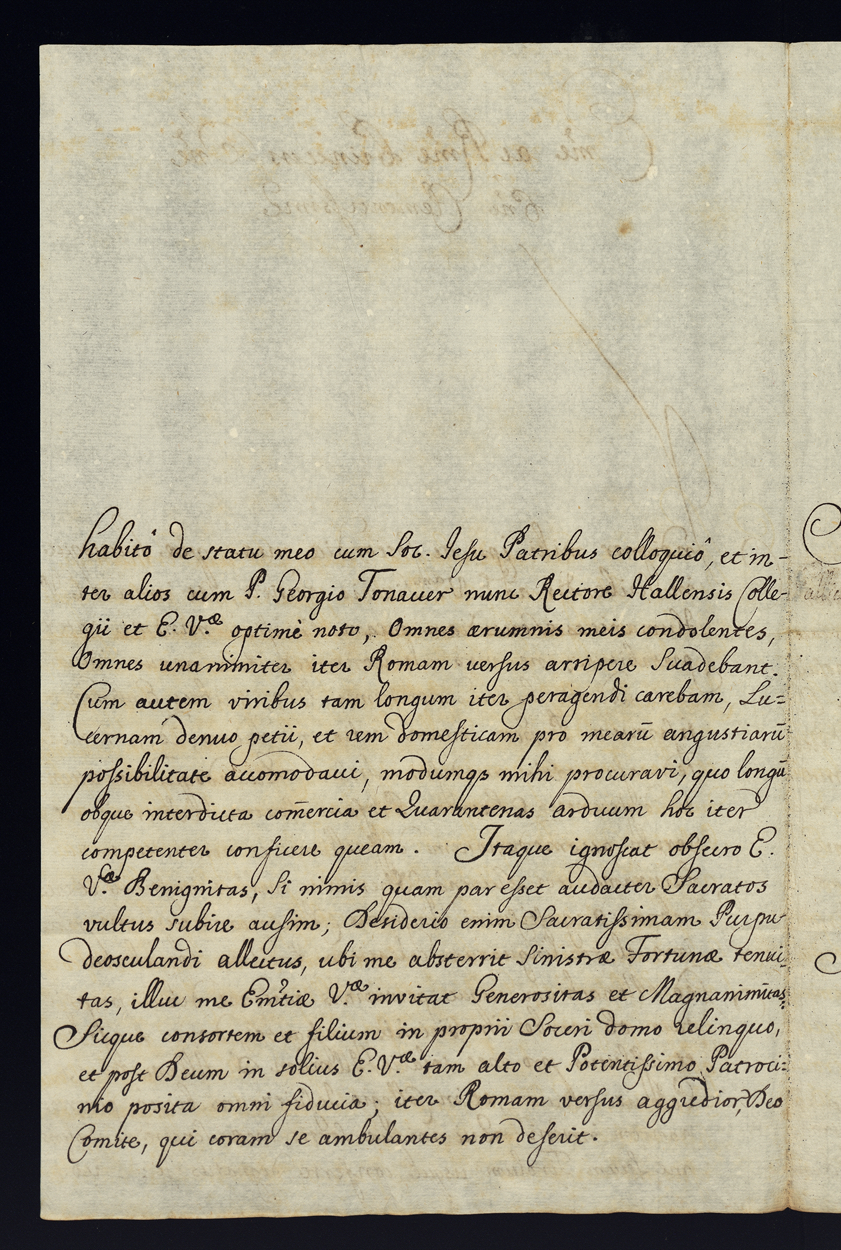 habitô de statu meo cum Soc. Iesu Patribus colloquiô, et in-
ter alios cum P. Georgio Tonauer nunc Rectore Hallensis Colle-
gii et E. V.æ optimè noto, Omnes ærumnis meis condolentes,
Omnes unanimiter iter Romam versus arripere Suadebant.
Cum autem viribus tam longum iter peragendi carebam, Lu=
cernam denuo petii, et rem domesticam pro mearū angustiarū
possibilitate accomodavi, modumqs mihi procuravi, quo longū
obque interdicta com̄ercia et Quarantenas arduum hoc iter
competenter conficere queam. Itaque ignoscat obsecro E.
V.æ Benignitas, Si nimis quam par esset audacter Sacratos
vultus subire ausim; Desiderio enim Sacratissimam Purpu-
deosculandi allectus, ubi me absterrit Sinistræ Fortunæ tenui:
tas, illuc me Em̄tiæ V.æ invitat Generositas et Magnanimitas.
Sicque consortem et filium in proprii Soceri domo relinquo,
et post Deum in solius E. V.æ tam alto et Potentissimo Patroci:
nio posita omni fiducia; iter Romam versus aggredior, Deo
Comite, qui coram se ambulantes non deserit.